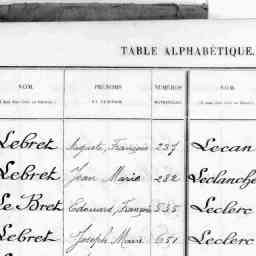 TABLE ALPHABÉTIQUE.
NOM. PRÉNOMS NUMÉROS NOM.
Lebret Auguste, François 237 Lecan
Lebret Jean Marie 282 Leclanché
Le Bret Edouard, François 535 Leclerc
Lebret Joseph Marie 651 Leclerc